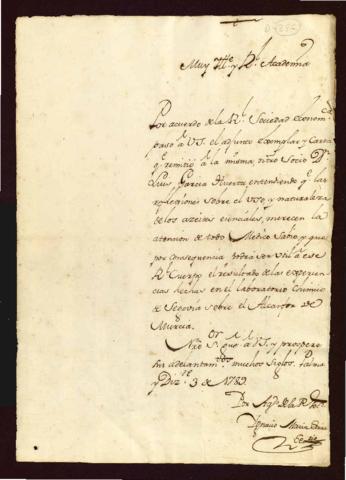 Muy Ill.e y R.l Academia
Por acuerdo de la R.l Sociedad Econom.ca
paso á VS. el adjunto exemplar y Carta
q.e remitió á la misma ntro Socio D.n
Luis Garcia Huerta, entendiendo q.e las
reflexiones sobre el uso, y naturaleza
de los azeites esenciales, merecen la
atencion de todo Medico Sabio, y que
por consequencia podrá ser util á ese
R.l Cuerpo el resultado de las experien-
cias hechas en el laboratorio Chimico
de Segovia sobre el Alcanfor de
Murcia.
Ntro S.or gue á VS. y prospere
sus adelantam.tos muchos siglos. Palma
y Diz.e 3 de 1789.
Por Ag.do de la R. Soc.d
Ignacio Maria